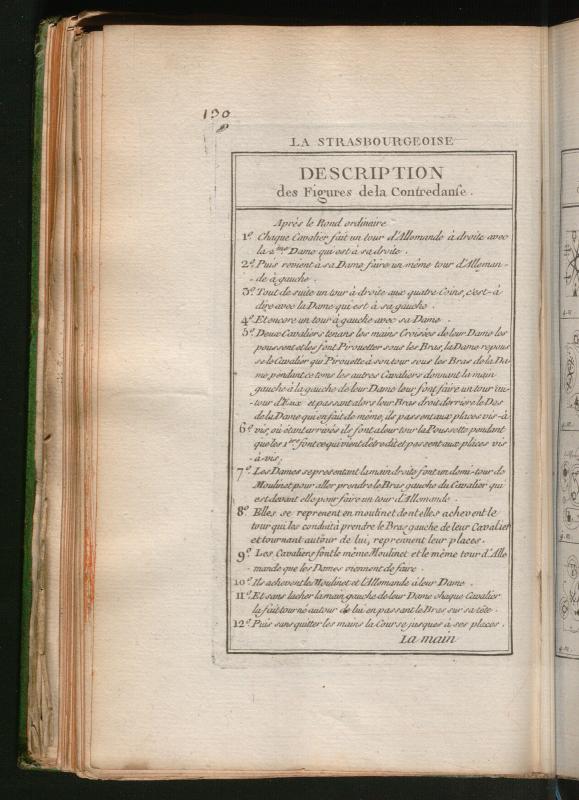 190
LA STRASBOURGEOISE
DESCRIPTION
des Figures de la Contredanse.
Après le Rond ordinaire
1º. Chaque Cavalier fait un tour d'Allemande à droite avec
la 2.me Dame qui est à sa droite.
2º. Puis revient à sa Dame faire un même tour d'Alleman-
-de à gauche.
3º. Tout de suite un tour à droite aux quatre Coins, c'est-à
dire avec la Dame qui est à sa gauche.
4º. Et encore un tour à gauche avec sa Dame.
5º. Deux Cavaliers tenans les mains Croisées de leur Dame les
poussent et les font Pirouetter sous les Bras, la Dame repous
se le Cavalier qui Pirouette à son tour sous les Bras de la Da
me, pendant ce tems les autres Cavaliers donnant la main
gauche à la gauche de leur Dame leur font faire un tour au-
-tour d'Eux et passant alors leur Bras droit derriere le Dos
de la Dame qui en fait de même, ils passent aux places vis-à
6º. vis, où étant arrivés ils font à leur tour la Poussette pendant
que les 1.ers font ce qui vient d'etre dit et passent aux places vis
-à-vis.
7º. Les Dames se presentant la main droite font un demi-tour de
Moulinet pour aller prendre le Bras gauche du Cavalier qui
est devant elle pour faire un tour d'Allemande.
8º. Elles se reprenent en moulinet dont elles achevent le
tour qui les conduit à prendre le Bras gauche de leur Cavalier
et tournant autour de lui, reprennent leur places.
9º. Les Cavaliers font le même Moulinet et le même tour d'Alle
mande que les Dames viennent de faire.
10º. Ils achevent les Moulinet et l'Allemande à leur Dame.
11º. Et sans lacher la main gauche de leur Dame chaque Cavalier
la fait tourné autour de lui en passant le Bras sur sa tête.
12º. Puis sans quitter les mains la Course jusques à ses places.
La main